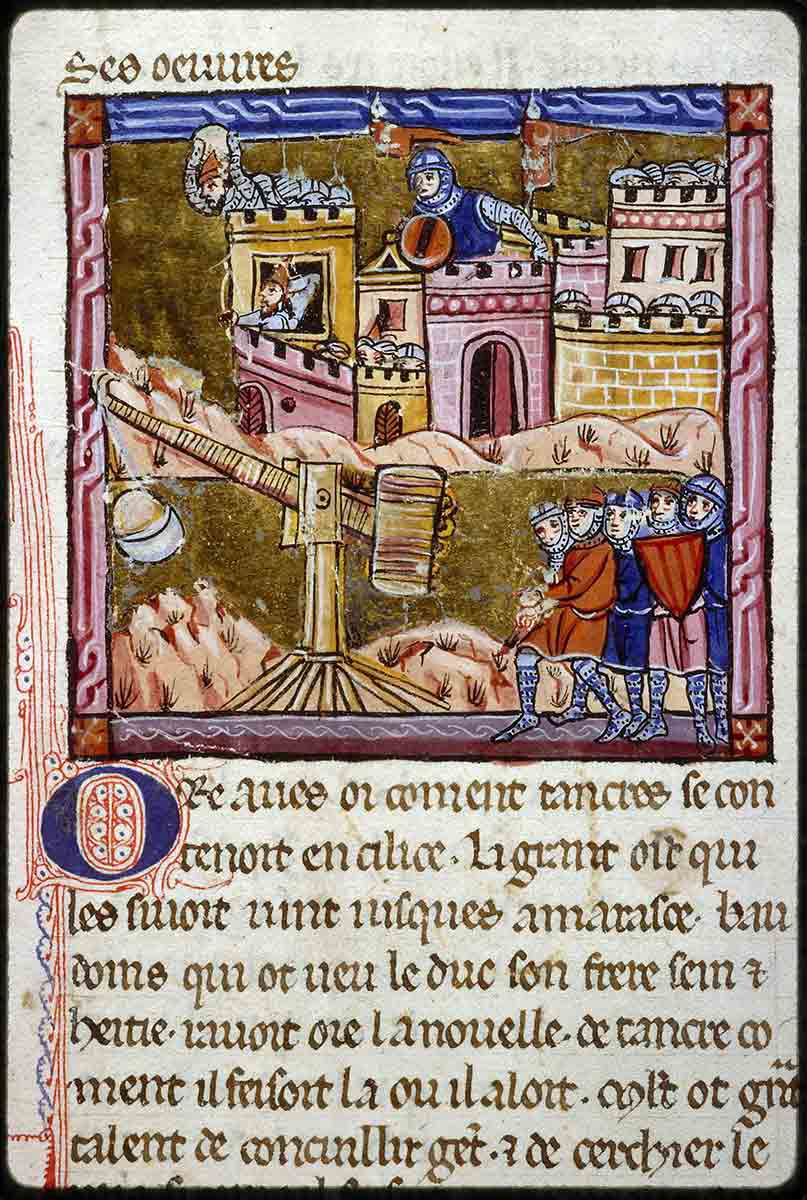 Ses oeuures
ORe aues oi coment tancres se con
tenoit en cilice. Li grant ost qui
les siuoit uint iusques a marasce. bau
doins qui ot ueu le duc son frere sein ⁊
heitie. i auoit oie la nouelle. de tancre co
ment il feisoit la ou il aloit. ot
talent de ⁊ de cerchier le